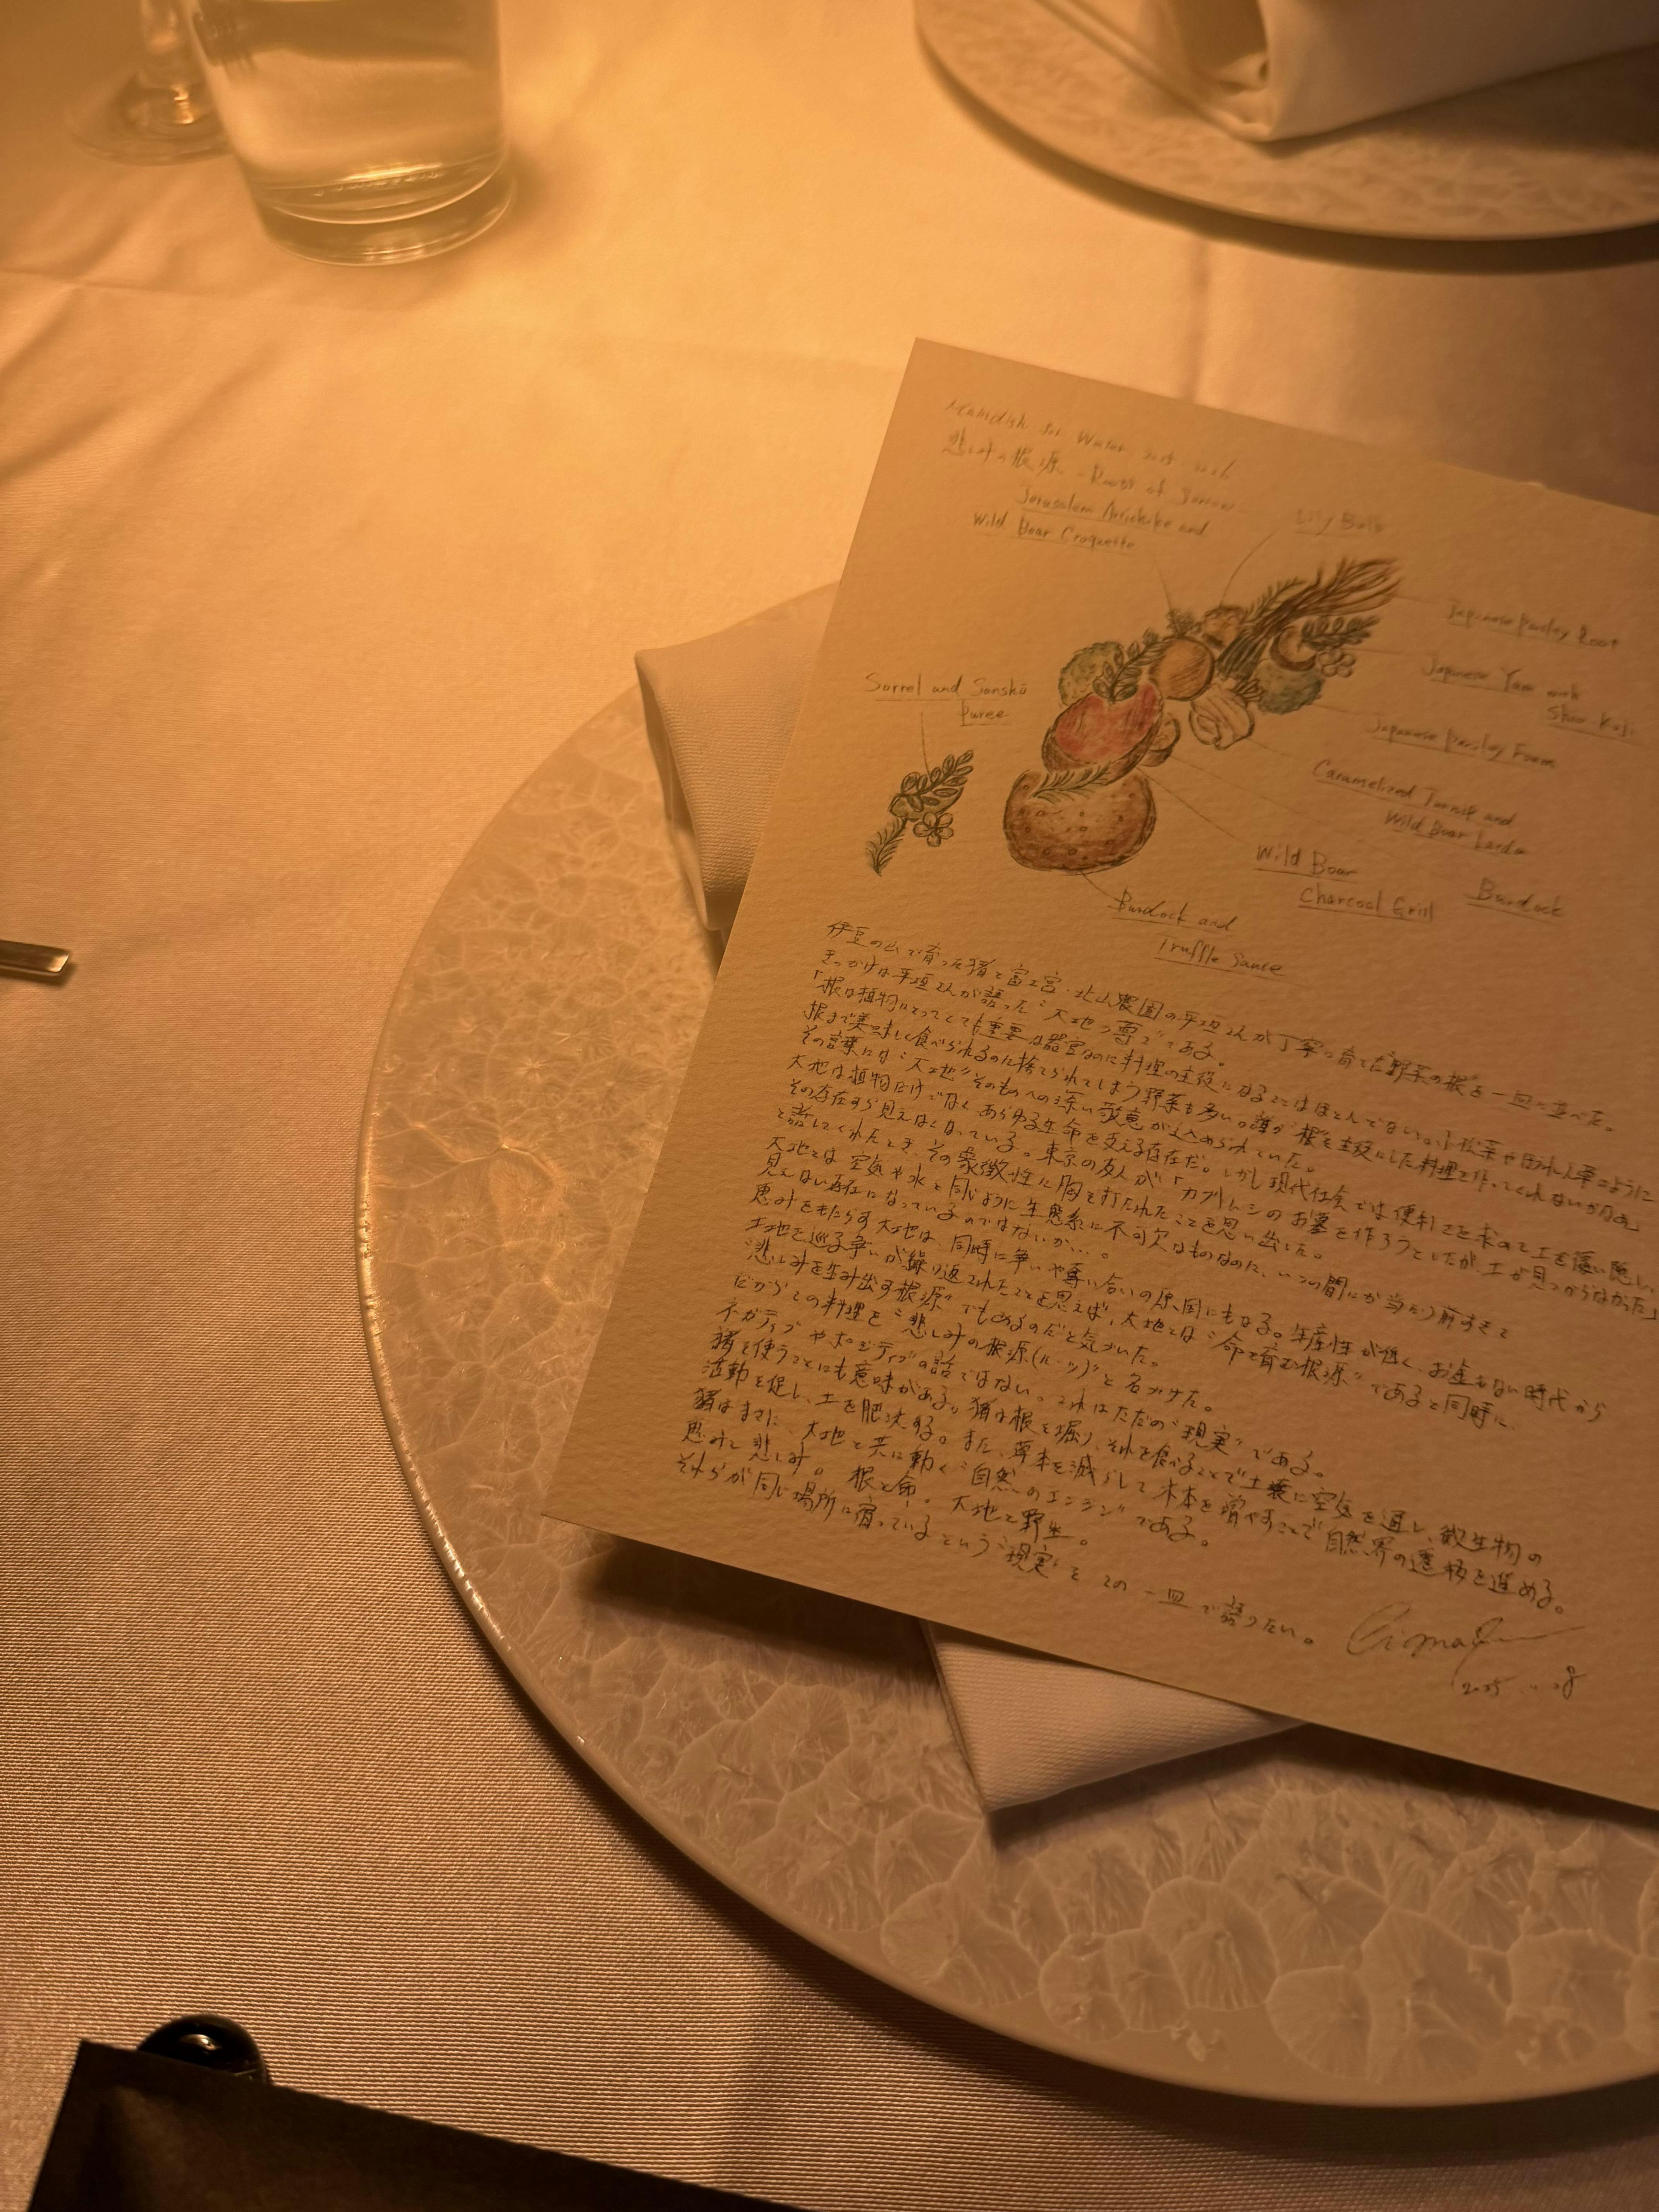 Maindish for Winter 2025-2026
悲しみの根源 - Roots of Sorrow
Jerusalem Artichoke and
Wild Boar Croquette
Lily Bulb
Japanese Parsley Root
Japanese Yam with
Shio-Koji
Japanese Parsley Foam
Caramelized Turnip and
Wild Boar Lardo
Sorrel and Sanshō
Puree
Wild Boar
Charcoal Grill
Burdock
Burdock and
Truffle Sauce
伊豆の山で育った猪と富士宮・北山農園の平垣さんが丁寧に育てた野菜の"根"を一皿に並べた。
きっかけは平垣さんが語った"大地の尊さ"である。
「根は植物にとってとても重要な器官なのに料理の主役になることはほとんどない。小松菜やほうれん草のように
根まで美味しく食べられるのに捨てられてしまう野菜も多い。誰か"根"を主役にした料理を作ってくれないかなあ」
その言葉には"大地"そのものへの深い敬意が込められていた。
大地は植物だけでなくあらゆる生命を支える存在だ。しかし現代社会では便利さを求めて土を覆い隠し、
その存在すら見えなくなっている。東京の友人が「カブトムシのお墓を作ろうとしたが土が見つからなかった」
と話してくれたとき、その象徴性に胸を打たれたことを思い出した。
大地とは空気や水と同じように生態系に不可欠なものなのに、いつの間にか当たり前すぎて
見えない存在になっているのではないか…。
恵みをもたらす大地は、同時に争いや奪い合いの原因にもなる。生産性が低く、お金もない時代から
土地を巡る争いが繰り返されたことを思えば、大地とは"命を育む根源"であると同時に、
"悲しみを生み出す根源"でもあるのだと気づいた。
だからこの料理を"悲しみの根源(ルーツ)"と名づけた。
ネガティブやポジティブの話ではない。これはただの"現実"である。
猪を使うことにも意味がある。猪は根を掘り、それを食べることで土壌に空気を通し、微生物の
活動を促し、土を肥沃する。また、草本を減らして木本を増やすことで自然界の遷移を進める。
猪はまさに、大地と共に動く"自然のエンジン"である。
恵みと悲しみ。根と命。大地と野生。
それらが同じ場所に宿っているという"現実"をこの一皿で語りたい。